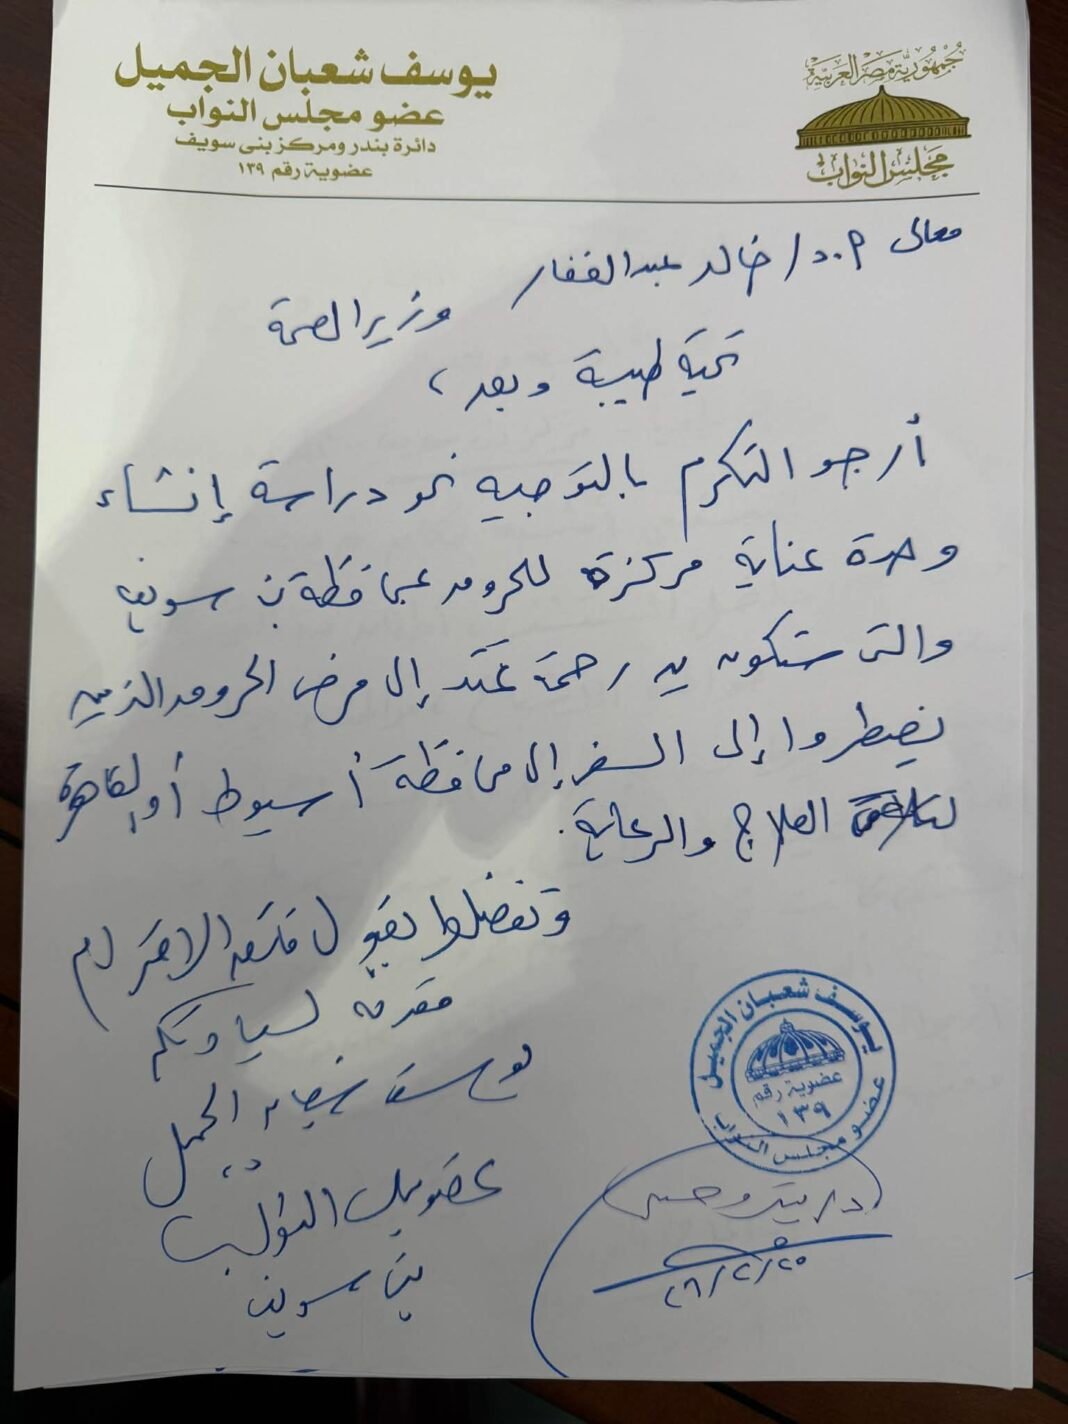 جمهورية مصر العربية
مجلس النواب
يوسف شعبان الجميل
عضو مجلس النواب
دائرة بندر ومركز بنى سويف
عضوية رقم ١٣٩
معالى أ.د/ خالد عبد الغفار
وزير الصحة
تحية طيبة وبعد ،
أرجو التكرم بالتوجيه نحو دراسة إنشاء
وحدة عناية مركزة للحروق بمحافظة بنى سويف
والتى ستكون يد رحمة تمتد إلى مرضى الحروق الذين
يضطروا إلى السفر إلى محافظة أسيوط أو القاهرة
العلاج والرعاية.
وتفضلوا بقبول فائق الاحترام
مقدمه لسيادتكم
يوسف شعبان الجميل
عضو مجلس النواب
بنى سويف
يوسف شعبان الجميل
عضوية رقم
١٣٩
عضو مجلس النواب